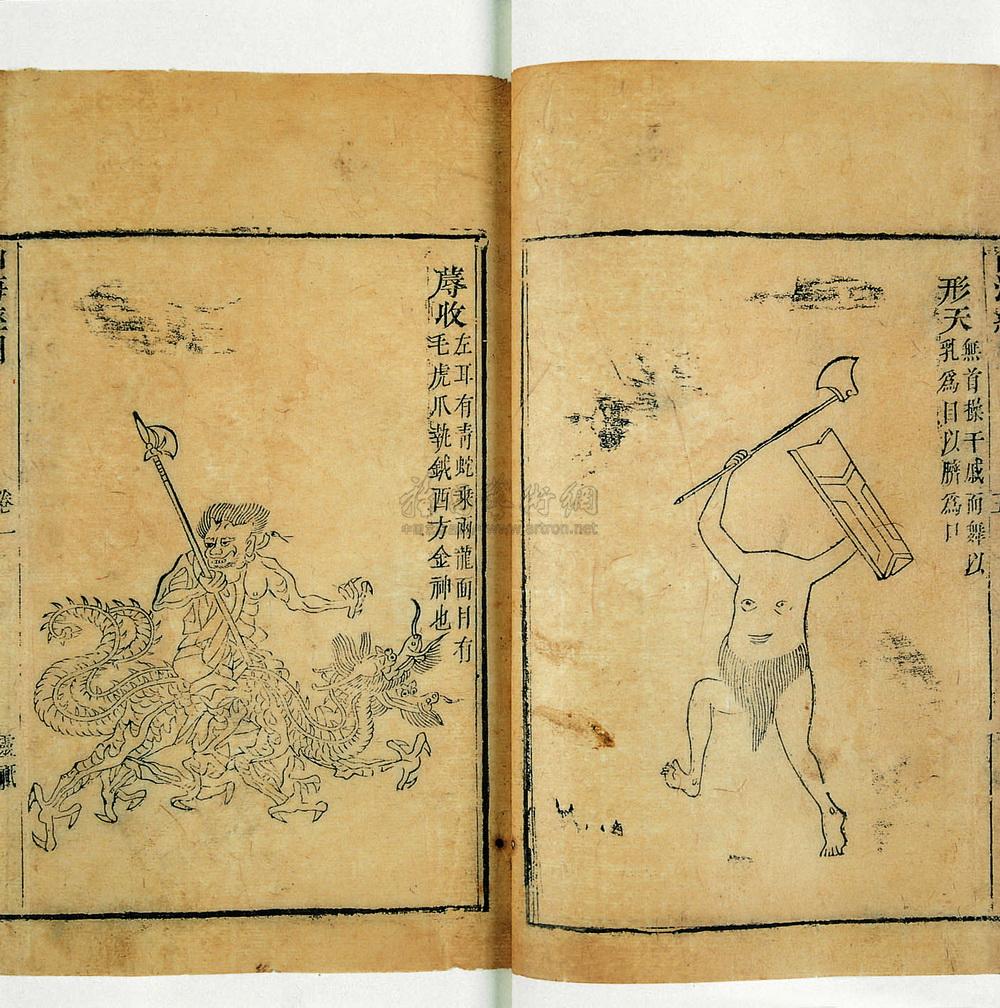 形天
無首操干戚而舞以
乳爲目以臍爲口
蓐收
左耳有青蛇乘兩龍面目有
毛虎爪執鉞西方金神也
卷一
靈祇
www.artron.net